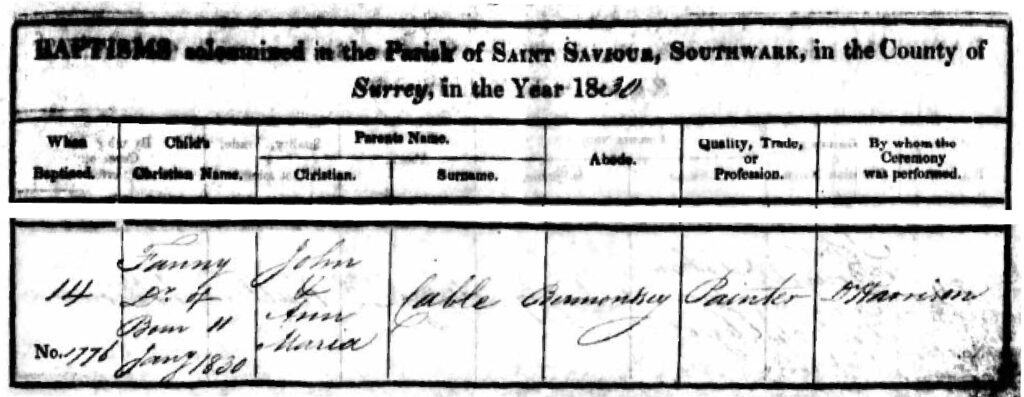 BAPTISMS solemnized in the Parish of SAINT SAVIOUR, SOUTHWARK, in the County of
Surrey, in the Year 1830
When Baptized.
Child's Christian Name.
Parents Name.
Christian.
Surname.
Abode.
Quality, Trade, or Profession.
By whom the Ceremony was performed.
14
No. 1776
Fanny
Dr. of
Born 11
Jany 1830
John
&
Ann
Maria
Cable
Bermondsey
Painter
Harrison